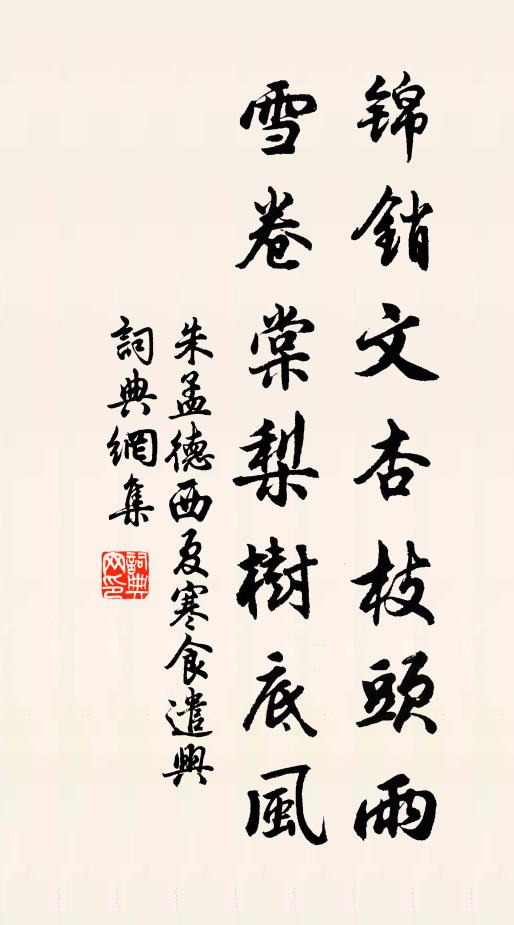 錦銷文杏枝頭雨
雪卷棠梨樹底風
朱孟德西夏寒食遣興
詞典網集
詞典
网印